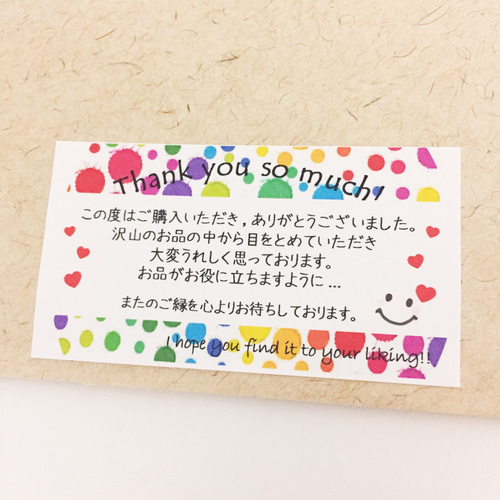 Thank you so much!
この度はご購入いただき,ありがとうございました。
沢山のお品の中から目をとめていただき
大変うれしく思っております。
お品がお役に立ちますように...
またのご縁を心よりお待ちしております。
I hope you find it to your liking!!